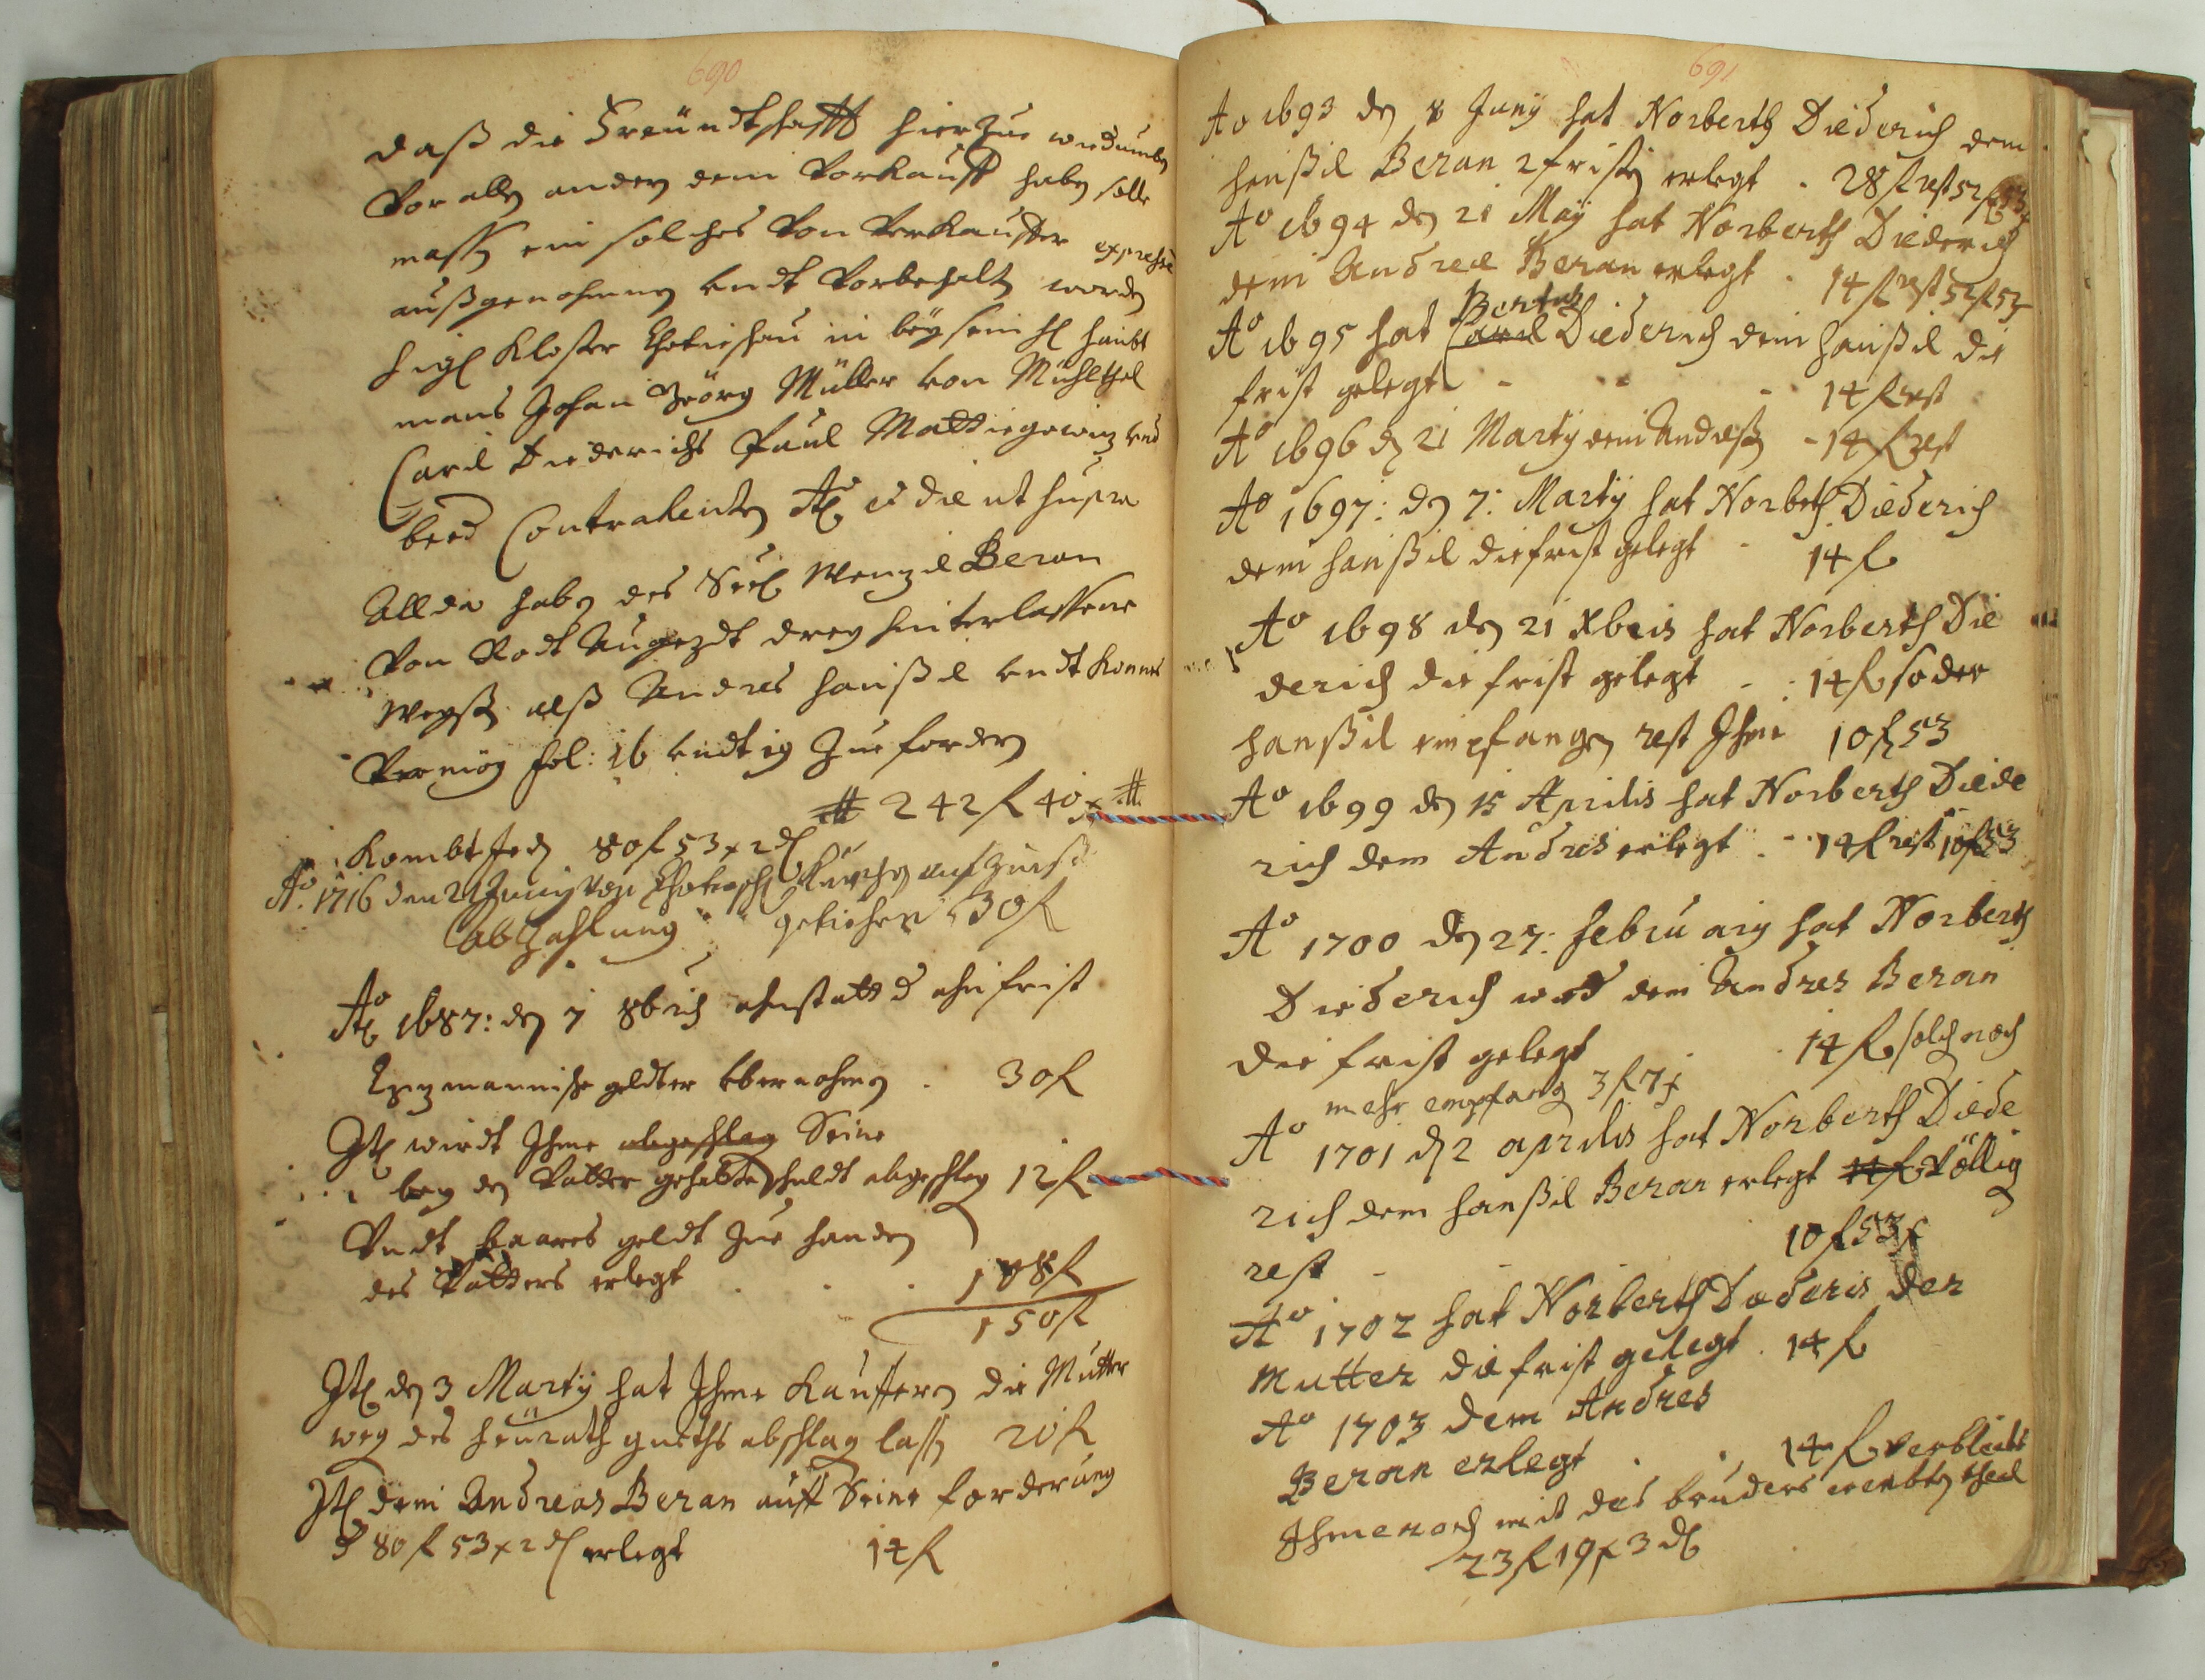 690
daß die Freündtschafft hierzue widumb
Vor alln andern dem Vorkauff habn solle
massn ein solches Von Verkauffer expresse
außgenohmen undt Vorbehaltn wordn
Kloster Chotieschau in beysein H haubt
mans Johan Geörg Müller von Mühlthel
Carl Diederichs Paul und
beed Contrahenten Ao et die ut supra
Allda habn des Seel Wenzel Beran
Von Rodt Augezdt drey hinterlassene
Waysn alß Andres Hanßel undt
Vermög fol: 16 undt 19 Zue fordern
# 242 f 40 x #
Kombt Jedn 80 f 53 x 2 d
Ao. 1716 den 21 Juny Von Kirchn auf Zinß
geliehen 30 f
Abzahlung
Ao 1687: dn 7 8bris ahnstatt d ahnfrist
geldter ubernohmen . 30 f
Itl wirdt Ihme abgeschlag Seine
bey dn Vatter gehabte schuldt abgeschlag 12 f
Undt baares geldt Zue handen
des Vatters erlegt . . . 108 f
150 f
Itl dn 3 Marty hat Ihme Kauffern die Mutter
weg des heürath gueths abschlag lassn 20 f
Itl dem Andreas Beran auff Seine forderung
d 80 f 53 x 2 d erlegt 14 f
691
Ao 1693 dn 8 Juny hat Norberth Diederich dem
hanßel Beran 2 fristn erlegt . 28 f rest 52 f 53 x
Ao 1694 dn 21 May hat Norberth Diederich
dem Andree Beran erlegt . 14 f rest 52 f 53
Bertul
Ao 1695 hat Carl Diederich dem hanßel die
frist gelegt - - - 14 f rest
Ao 1696 dn 21 Marty dem Andreß - 14 f rest
Ao 1697: dn 7: Marty hat Norberth Diederich
dem hanßel die frist gelegt - 14 f
Ao 1698 dn 21 Xbris hat Norberth Die
derich die frist gelegt - : 14 f so der
hanßel empfangn rest Ihme 10 f 53
Ao 1699 dn 15 Aprilis hat Norberth Diede
rich dem Andres erlegt . - 14 f rest 10 f 53
Ao 1700 dn 27: Februariy hat Norberth
Diederich dem Andres Beran
die frist gelegt . 14 f solch noch
mehr empfang 3 f 7 x
Ao 1701 dn 2 aprilis hat Norberth Diede
rich dem hanßel Beran erlegt 14 f Völlig
rest - - 10 f 53 x
Ao 1702 hat Norberth Dederis der
Mutter die frist gelegt . 14 f
Ao 1703 dem Andres
Beran erlegt . . 14 f verbleibt
Ihme noch mit des bruders ererbtn theil
23 f 19 x 3 d